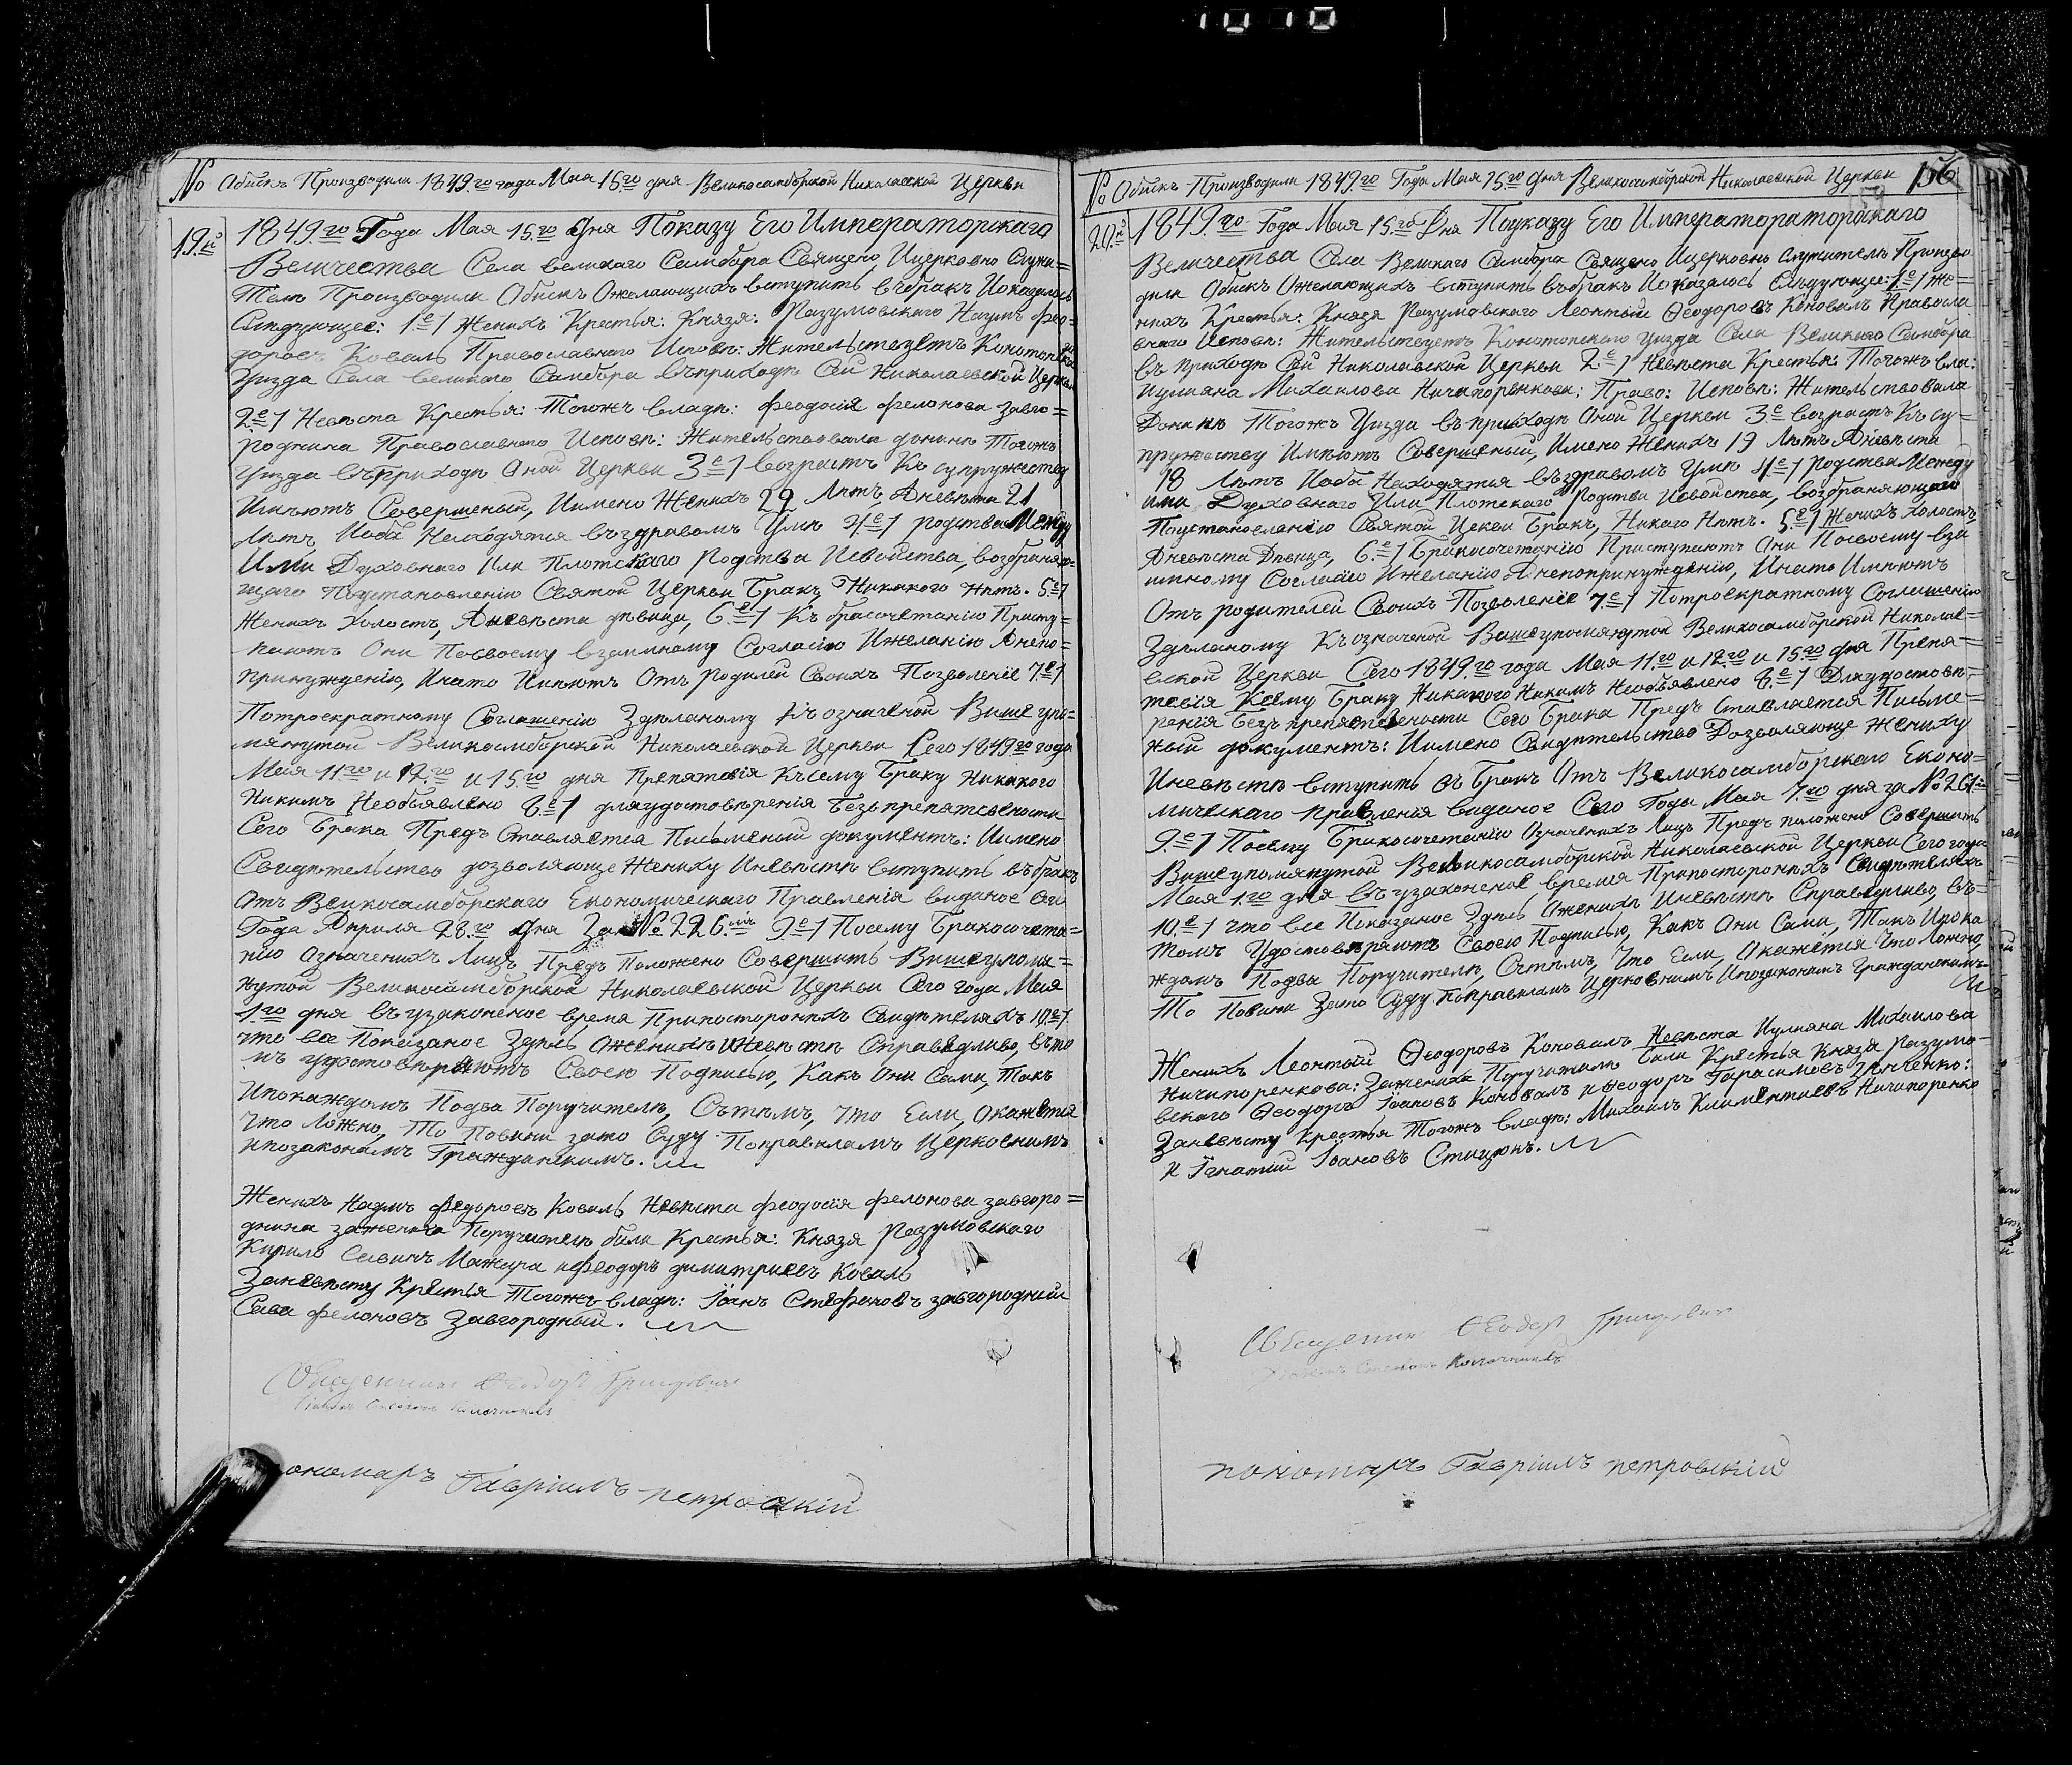 № Обискъ Производили 1849.го года Мая 15.го дня Великосамборской Николаевской Церкви
19.й
1849.го Года Мая 15.го Дня Показу Его Императорскаго
Величества Села великаго Самбора Священо, Ицерковно Служи=
Тели Производили Обискъ Ожелающихъ вступить въбракъ Ипоказалось
Слндующее: 1е/ Женихъ Крестья: Князя: Разумовскаго Наумъ фео=
доровъ Коваль Православнаго Исповн: Жительствуетъ Конотопска
Унзда Села великаго Самбора въприходн Сей Николаевской Церкви
2.е/ Невнста Крестья: Тогожъ владн: феодосія фелонова завго=
роднина Православнаго Исповн: Жительствовала донинн Тогожъ
Унзда въприходн Оной Церкви 3е/ возрастъ Къ супружеству
Имнютъ Совершеный, Иимено Женихъ 22 Лнтъ, Аневнста 21
Лнтъ Иоба Находятся въздравомъ Умн 4.е/ родства Между
Ими Духовнаго Или Плотскаго Родства Исвойства, возбраняю=
щаго Поустановленію Святой Церкви Бракъ, Никакого Ннтъ. 5.е/
Женихъ Холостъ, Аневнста двица, 6.е/ Къ бракосочетанію Присту=
паютъ Они Посвоему взаимному Согласію Ижеланію Анепо=
принужденію, Инато Имнютъ Отъ родилей Своихъ Позволеніе 7.е/
Потроекратному Соглошенію Здланому Къ означеной Више упо=
мянутой Великосамборской Николаевской Церкви Сего 1849го года
Мая 11го и 12.го и 15.го дня Препятствія Къ сему Браку Никакого
Никимъ Необъявлено 8.е/ дляудостовренія Безъпрепятсвености
Сего Брака Предъ Ставляется Письменый документъ: Иимено
Свидтельство дозволяюще Жениху Иневнстн вступить въбракъ
Отъ Великосамборскаго Економическаго Правленія виданое Сего
Года Априля 28.го дня За №226.мъ 9.е/ Посему Бракосочета=
нію Означенихъ Лицъ Предъ Положено Совершить Вишеупомя=
нутой Великосамборской Николаевской Церкви Сего года Мая
1го дня въузаконеное время Припостороннихъ Свидтеляхъ 10.е/
что все Показаное Здсь Оженихн Иневнстн Справедливо, вто
мъ удостовряютъ Своею Подписью, Какъ Они Сами, Такъ
Ипокаждомъ Подва Поручителн, Стмъ, что Если, Окажется
что Ложно, То Повини зато Суду Поправиламъ Церковнимъ
ипозаконамъ Гражданскимъ.
Женихъ Наумъ федоровъ Коваль Невнста феодосія фелонова завгоро=
днина зажениха Поручители били Крестья: Князя Разумовскаго
Кирило Савинъ Мажура ифеодоръ димитриевъ Коваль
Заневнсту Крестья Тогожъ владн: Іоанъ Стефановъ завгородний
Сава фелоновъ Завгородный.
Священникъ Феодоръ Григоровичъ
ономаръ Гавріилъ петровскій
№ Обискъ Производили 1849.го Года Мая 15.го дня Великосамборской Николаевской Церкви 156
20.й
1849.го Года Мая 15.го Дня Поуказу Его Императораторскаго
Величества Села Великаго Самбора Священо Ицерковно Служители Произво
дили Обискъ Ожелающихъ вступить въбракъ Ипоказалось Слндующее: 1.е/ Же=
нихъ Крестья: Князя Разумовскаго Леонтий Ѳеодоровъ Коновалъ Правосла
внаго Исповн: Жительствуетъ Конотопскаго Унзда Села Великаго Самбора
въ приходн Сей Николаевской Церкви 2.е/ Невнста Крестья: Тогожъ вла:
Иулияна Михаилова Ничипоренкова: Право: Исповн: Жительствовала
Донинн Тогожъ Унзда въприходн Оной Церкви 3.е возрастъ Къ су=
пружеству Имнютъ Совершеный, Имено Женихъ 19 Лнтъ Аневнста
18 Лнтъ Иоба Находятся въздравомъ Умн 4.е/ Родства Между
ими Духовнаго Или Плотскаго родства Исвойства, возбраняющаго
Поустановленію Святой Цекви Бракъ, Никаго Ннтъ. 5.е/ Женихъ Холостъ,
Аневнста Двица, 6.е/ Бракосочетанію Приступаютъ Они Посвоему вза
имному Согласію Ижеланію Анепопринужденію, Инато Имнютъ
Отъ родителей Своихъ Позволеніе 7.е/ Потроекратному Соглошенію
Здланому Къозначеной Вишеупомянутой Великосамборской Николае=
вской Церкви Сего 1849.го года Мая 11.го и 12.го и 15.го дня Препя=
тсвія Ксему Браку Никакого Никимъ Необъявлено 8.е/ Дляудостовн=
ренія Безъпрепятсвености Сего Брака Предъ Ставляется Письме=
ный документъ: Иимено Свидтельство Дозволяюще Жениху
Иневнстн вступить въ Бракъ Отъ Великосамборскаго Еконо=
мическаго Правленія виданое Сего Года Мая 7.го дня за №261
9.е/ Посему Бракосочетанію Означенихъ Лицъ Предъ положено Совершить
Вишеупомянутой Великосамборской Николаевской Церкви Сего года
Мая 1.го дня въузаконеное время Припостороннихъ Свидтеляхъ
10.е/ что все Показаное Здсь Оженихн Иневнстн Справедливо, въ=
томъ Удостовряютъ Своею Подписью, Какъ Они Сами, Такъ Ипока
ждомъ Подва Поручителн, Стмъ, Что Если, Окажется Что Ложно,
То Повини Зато Суду Поправиламъ Церковнимъ Ипозаконамъ Гражданскимъ
Женихъ Леонтий Ѳеодоровъ Коновалъ Невнста Иулияна Михаилова
Ничипоренкова: Зажениха Поручители били Крестья Князя Разумо-
вскаго Ѳеодоръ Іоановъ Коновалъ иѲеодоръ Гарасимовъ
Заневнсту Крестья Тогожъ владн: Михаилъ Климентиевъ Ничипоренко
и Ігнатий Іоановъ Стецюкъ.
Священникъ Феодоръ Григоровичъ
пономаръ Гавріилъ петровскій